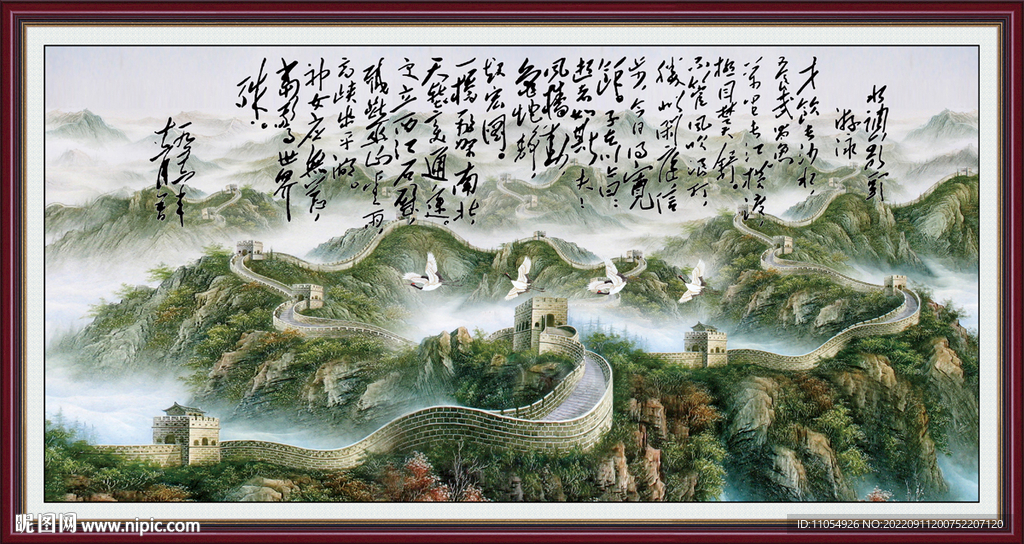 水调歌头
游泳
才饮长沙水，
又食武昌鱼
万里长江横渡
极目楚天舒。
不管风吹浪打
胜似闲庭信
步今日得宽
馀。子在川上曰：
逝者如斯夫！
风樯动，
龟蛇静，
起宏图。
一桥飞架南北，
天堑变通途。
更立西江石壁，
截断巫山云雨，
高峡出平湖。
神女应无恙，
当惊世界
殊。
一九五六年
昵图网 www.nipic.com
ID:11054926 NO:20220911200752207120